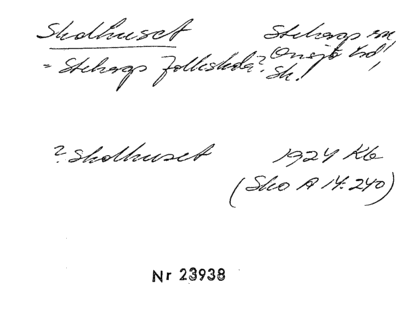 Skolhuset Stehags sn,
= Stehags folkskola? Onsjö hd,
Sk.
? Skolhuset 1924 Kb
(Sko A 14:240)
Nr 23938